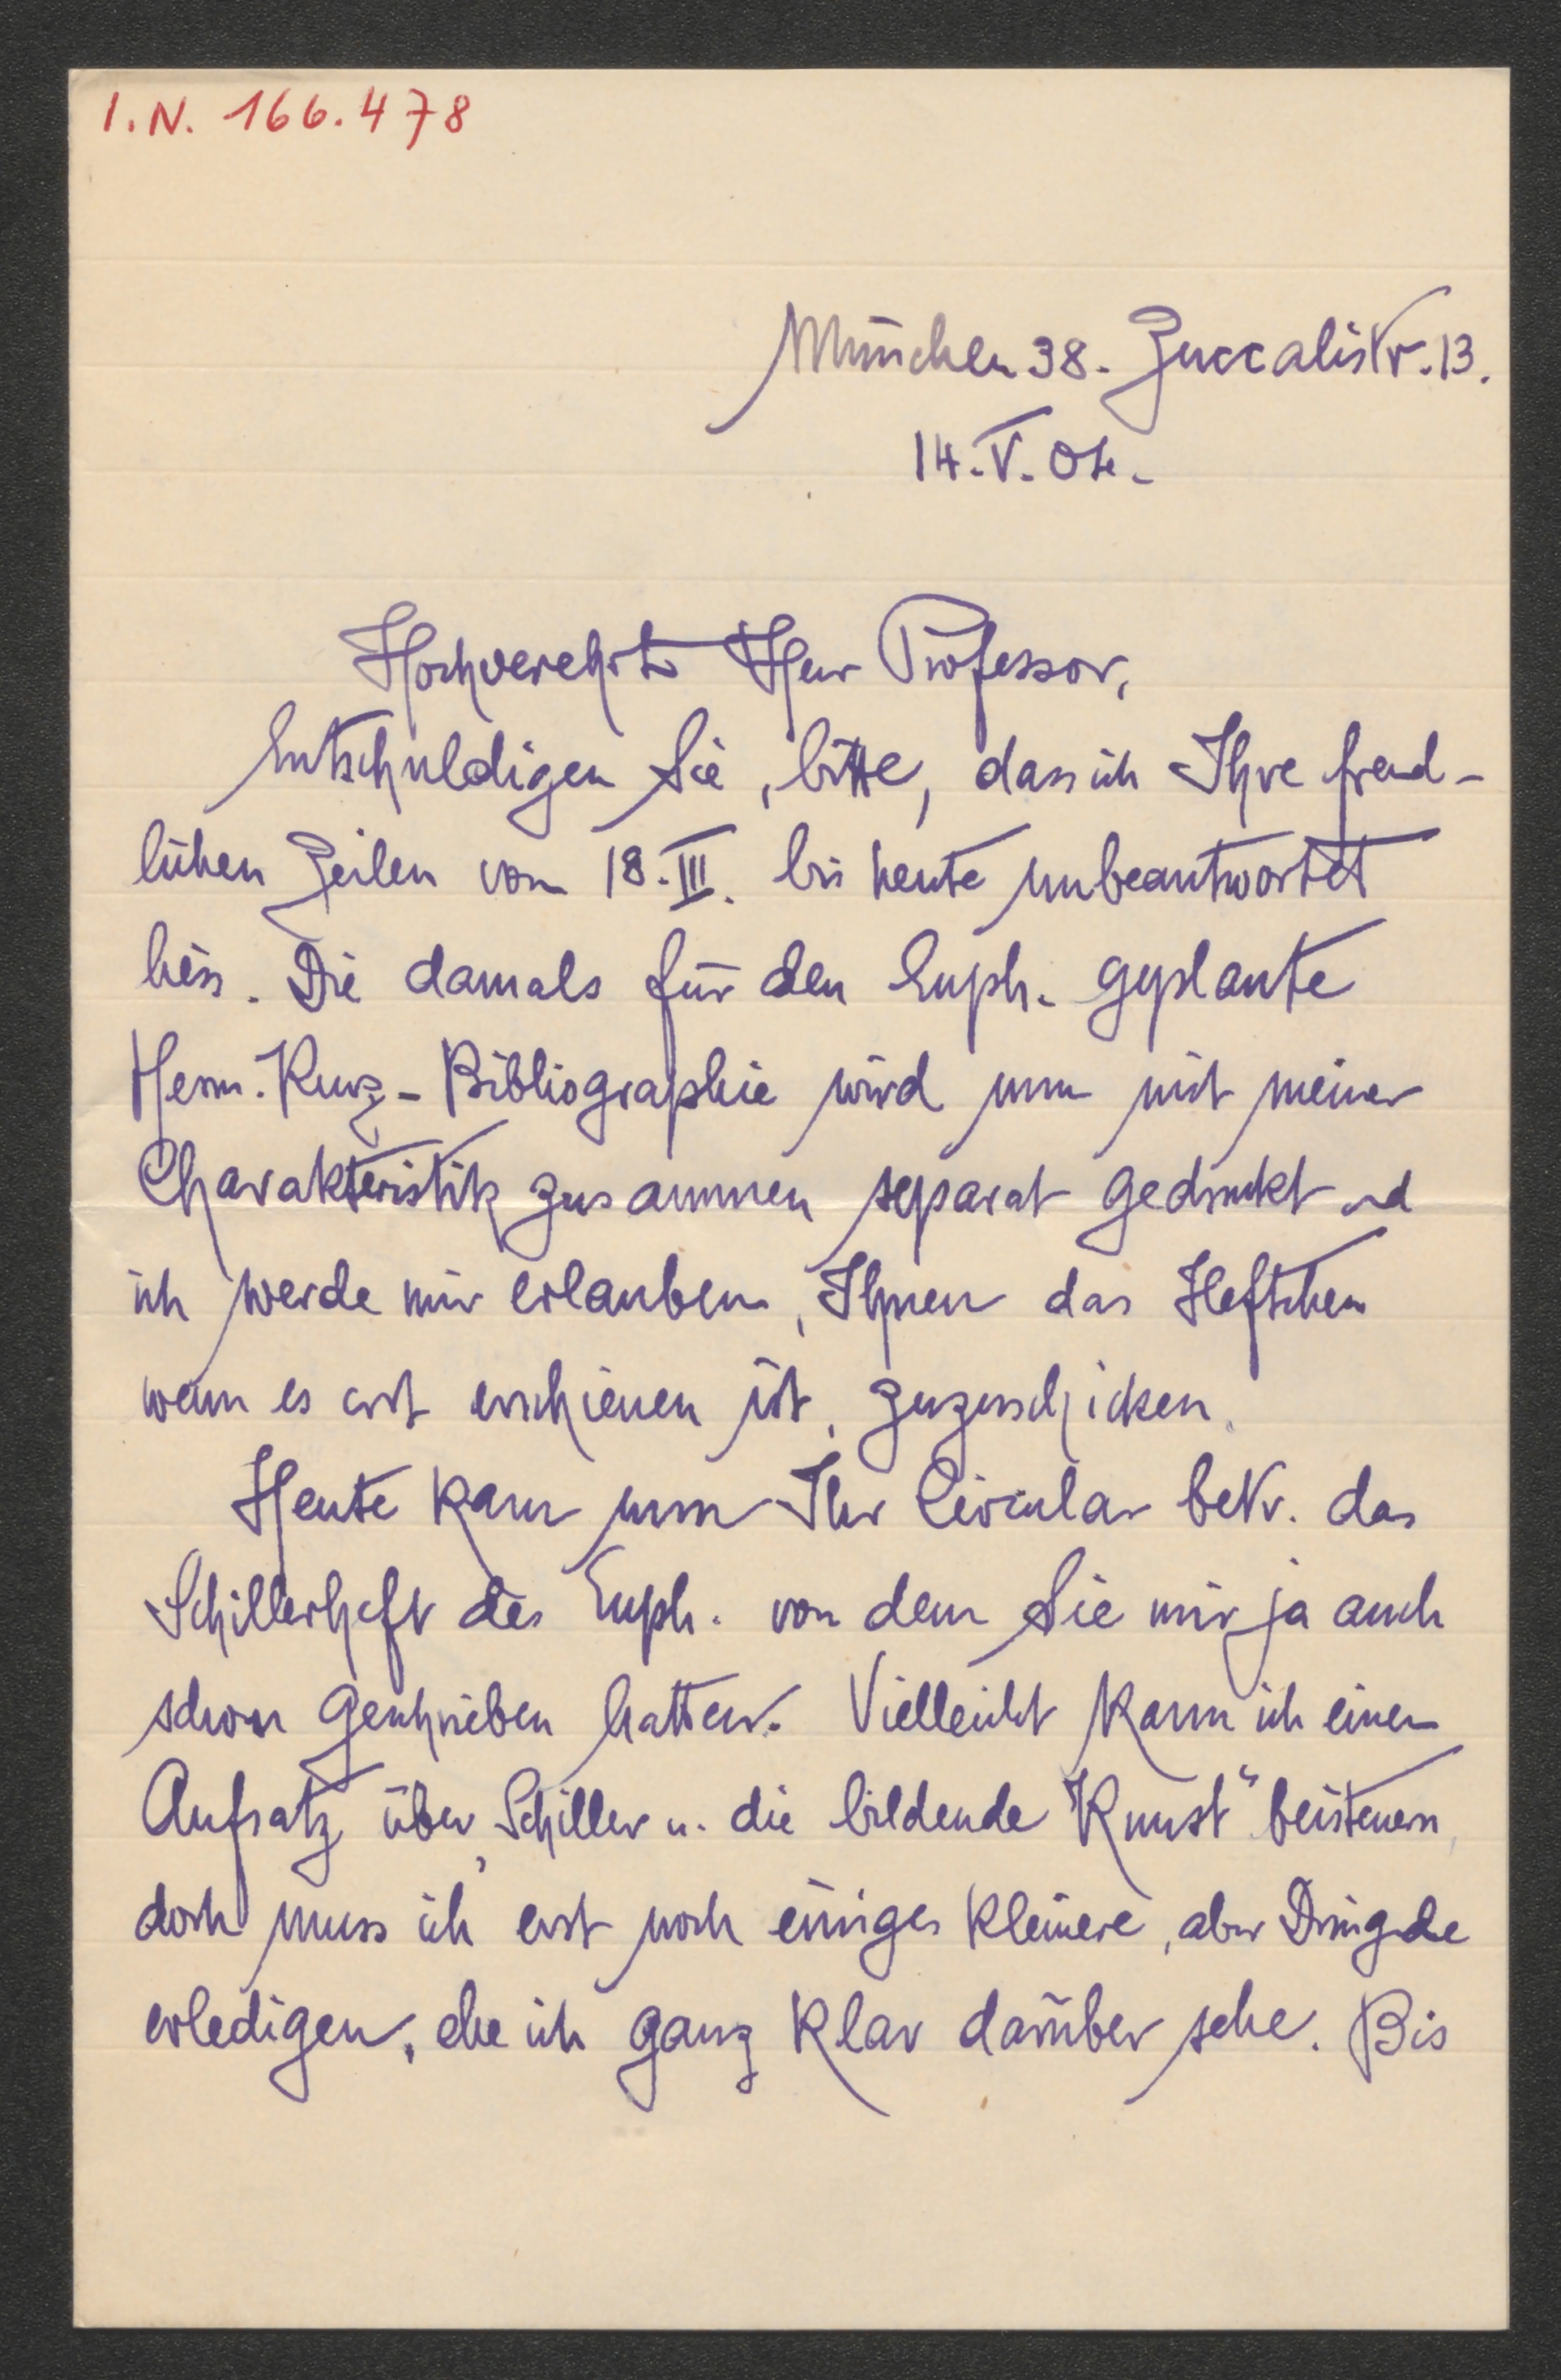 I.N. 166.478
München 38. Zuccalistr. 13.
14. V. 04.
Hochverehrter Herr Professor,
Entschuldigen Sie, bitte, dass ich Ihre freund-
lichen Zeilen vom 18. III. bis heute unbeantwortet
liess. Die damals für den Euph. geplante
Herm. Kurz-Bibliographie wird nun mit meiner
Charakteristik zusammen separat gedruckt und
ich werde mir erlauben, Ihnen das Heftchen
wenn es erst erschienen ist, zuzuschicken.
Heute kam nun Ihr Circular betr. das
Schillerheft des Euph. von dem Sie mir ja auch
schon geschrieben hatten. Vielleicht kann ich einen
Aufsatz über „Schiller u. die bildende Kunst" beisteuern,
doch muss ich erst noch einiges kleinere, aber Dringende
erledigen, ehe ich ganz klar darüber sehe. Bis